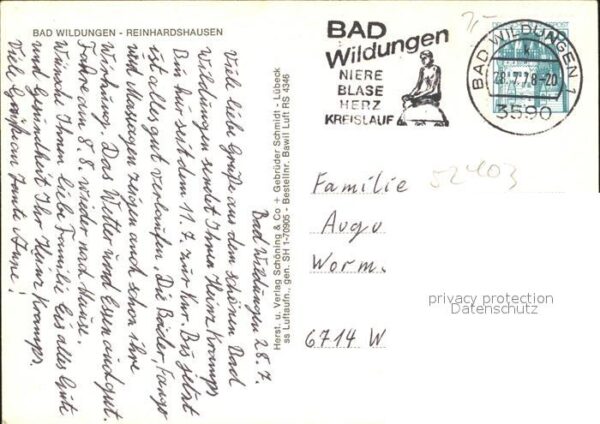 BAD WILDUNGEN - REINHARDSHAUSEN
Bad Wildungen 28.7.
Viele liebe Grüße aus dem schönen Bad
Wildungen sendet Ihnen Heinz Kromps.
Bin hier seit dem 11.7. zur Kur. Bis jetzt
ist alles gut verlaufen. Die Bäder, Fango
und Massagen zeigen auch schon ihre
Wirkung. Das Wetter und Essen sind gut.
Fahre am 8.8. wieder nach Hause.
Wünsche Ihnen liebe Familie bis alles Gute
und Gesundheit Ihr Heinz Kromps.
Viele Grüße an Tante Anne!
Herst. u. Verlag Schöning & Co + Gebrüder Schmidt - Lübeck
ss Luftaufn., gen. SH 1-70905 - Bestellnr. Bawil Luft RS 4346
BAD
Wildungen
NIERE
BLASE
HERZ
KREISLAUF
BAD WILDUNGEN 1
28.-7.78-20
3590
Familie
52403
Augu
Worm.
6714 W
privacy protection
Datenschutz